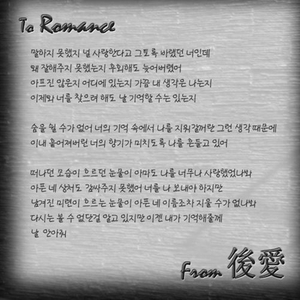 To Romance
말하지 못했지 널 사랑한다고 그토록 바랬던 너인데
왜 잘해주지 못했는지 후회해도 늦어버렸어
아프진 않은지 어디에 있는지 가끔 내 생각은 나는지
이제와 너를 찾으려 해도 날 기억할 수는 있는지
숨을 쉴 수가 없어 너의 기억 속에서 나를 지워갈까만 그런 생각 때문에
이내 흩어져버린 너의 향기가 미치도록 나를 흔들고 있어
떠나던 모습이 흐르던 눈물이 아마도 나를 너무나 사랑했었나봐
아픈 네 상처도 감싸주지 못했어 너를 나 보내야 하지만
남겨진 미련이 흐르는 눈물이 아픈 네 이름조차 지울 수가 없나봐
다시는 볼 수 없단걸 알고 있지만 이젠 내가 기억해줄게
날 안아줘
From 後愛